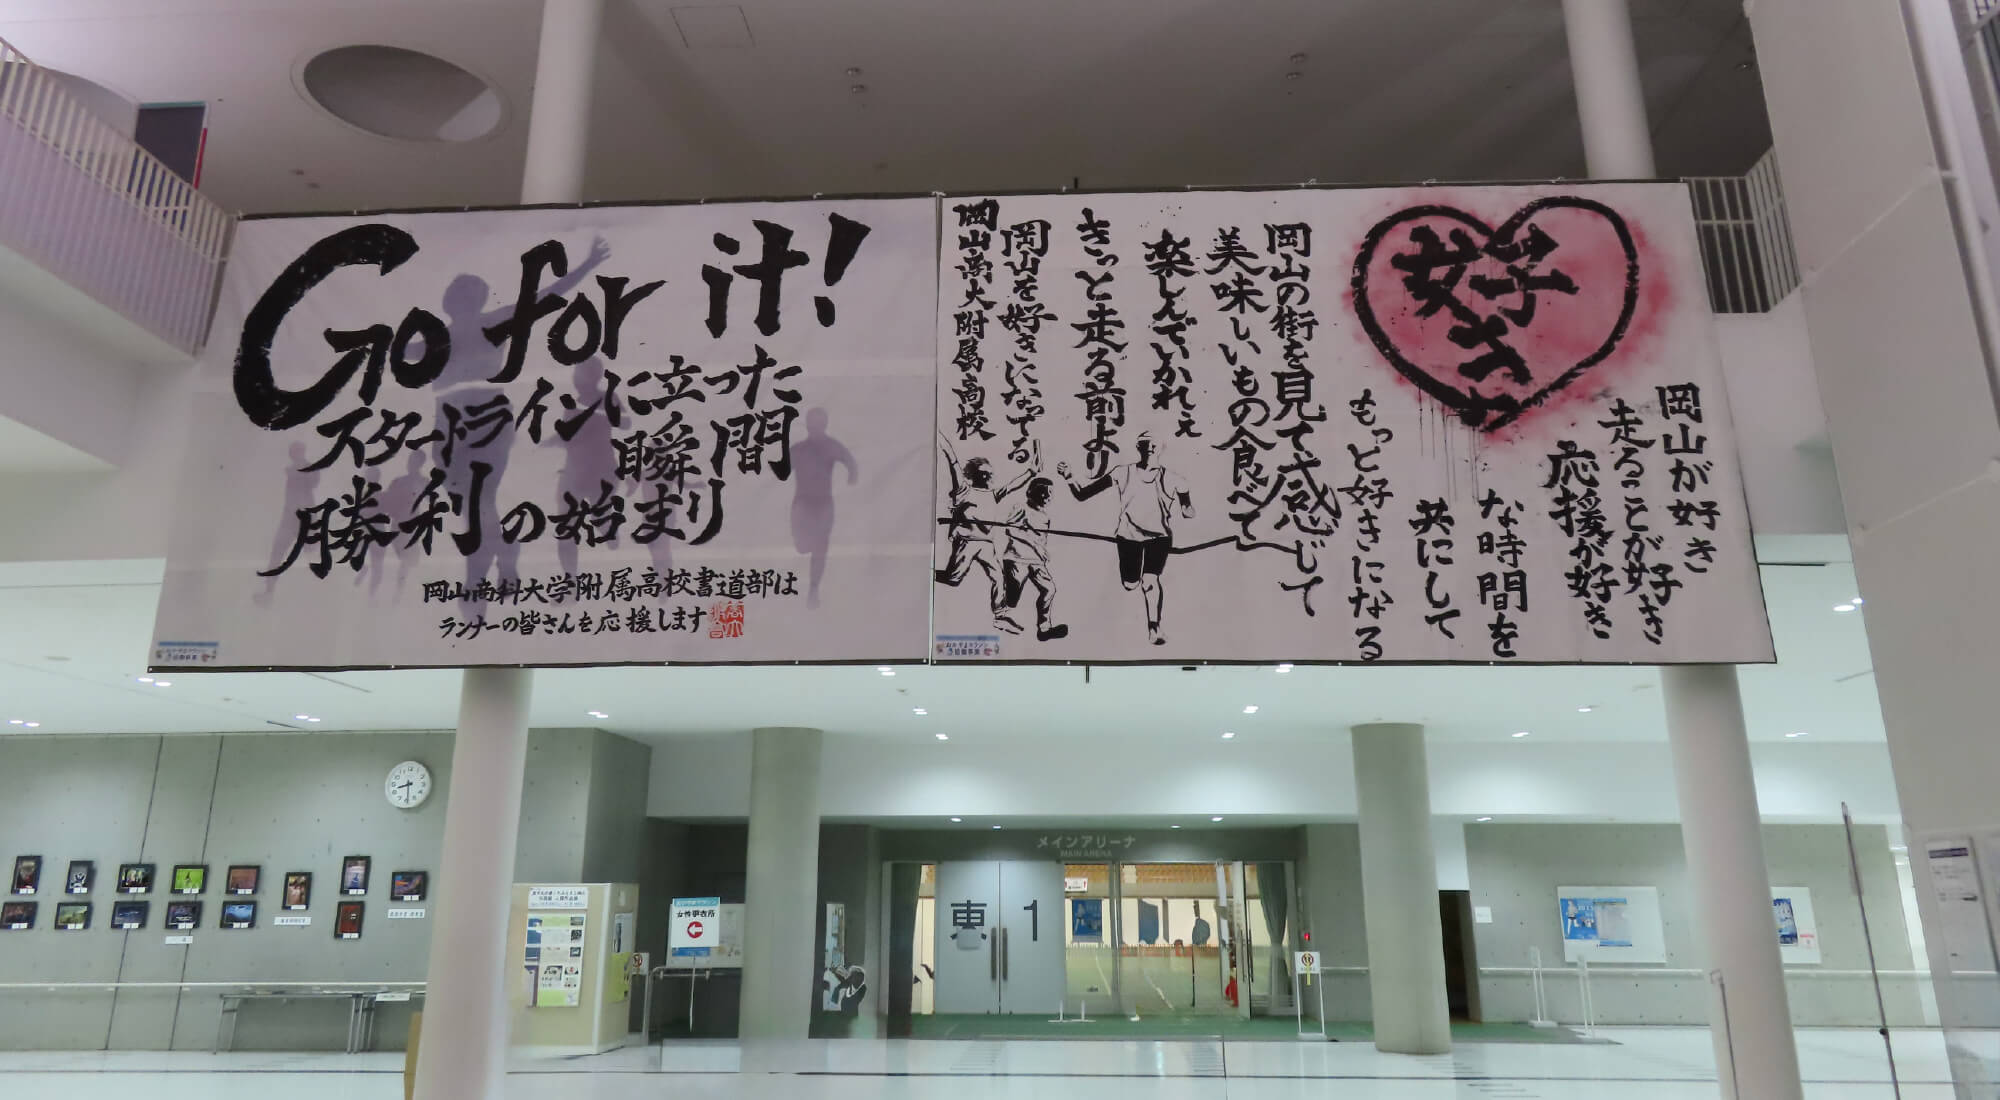 Go for it!
スタートラインに立った
瞬間
勝利の始まり
岡山商科大学附属高校書道部は
ランナーの皆さんを応援します
おかやまマラソン
協働事業
好き
岡山が好き
走ることが好き
応援が好き
な時間を
共にして
もっと好きになる
岡山の街を見て感じて
美味しいもの食べて
楽しんでいかれぇ
きっと走る前より
岡山を好きになってる
岡山商大附属高校
おかやまマラソン
協働事業
メインアリーナ
MAIN ARENA
東 1
女性更衣所